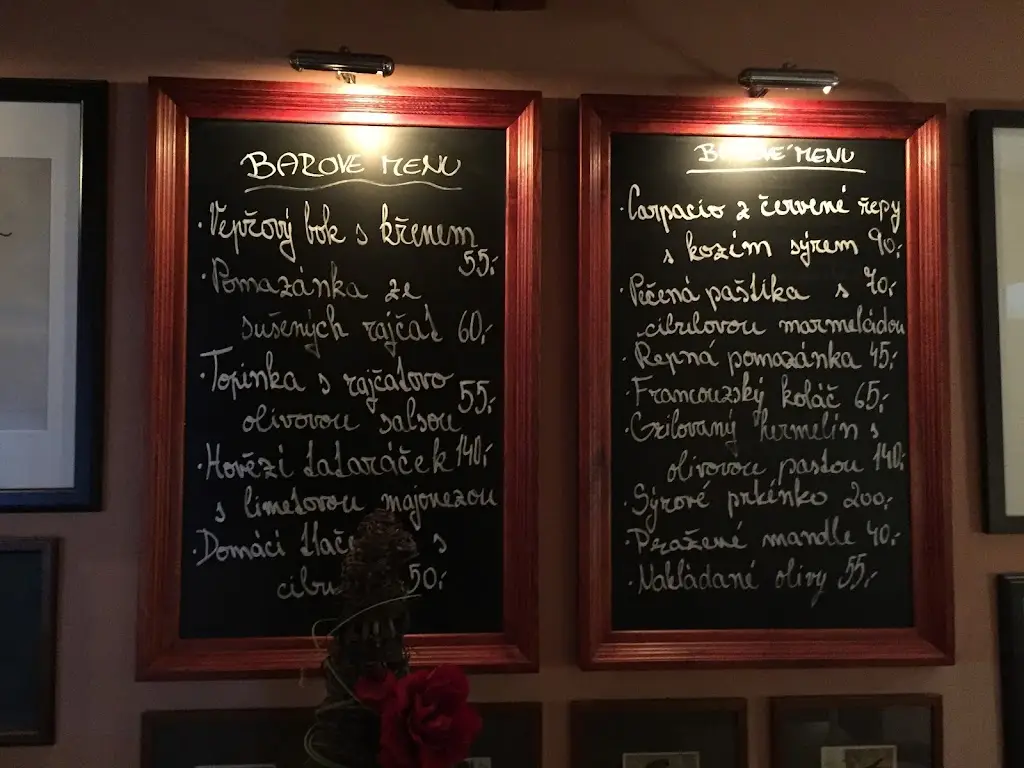 BAROVE MENU
· Vepřový bok s křenem
55,-
· Pomazánka ze
sušených rajčat 60,-
· Topinka s rajčatovo
olivovou salsou 55,-
· Hovězí tataráček 140,-
s limetovou majonezou
· Domácí tlače s
cibu 50,-
BAROVÉ MENU
· Carpacio z červené řepy
s kozím sýrem 90,-
· Pečená paštika s 70,-
cibulovou marmeládou
· Řepná pomazánka 45,-
· Francouzský koláč 65,-
· Grilovaný hermelín s
olivovou pastou 140,-
· Sýrové prkénko 200,-
· Pražené mandle 40,-
· Nakládané olivy 55,-